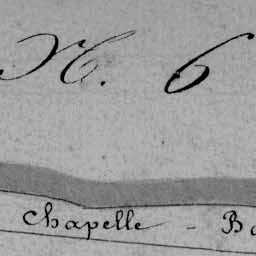 N. 6
Chapelle - Ba